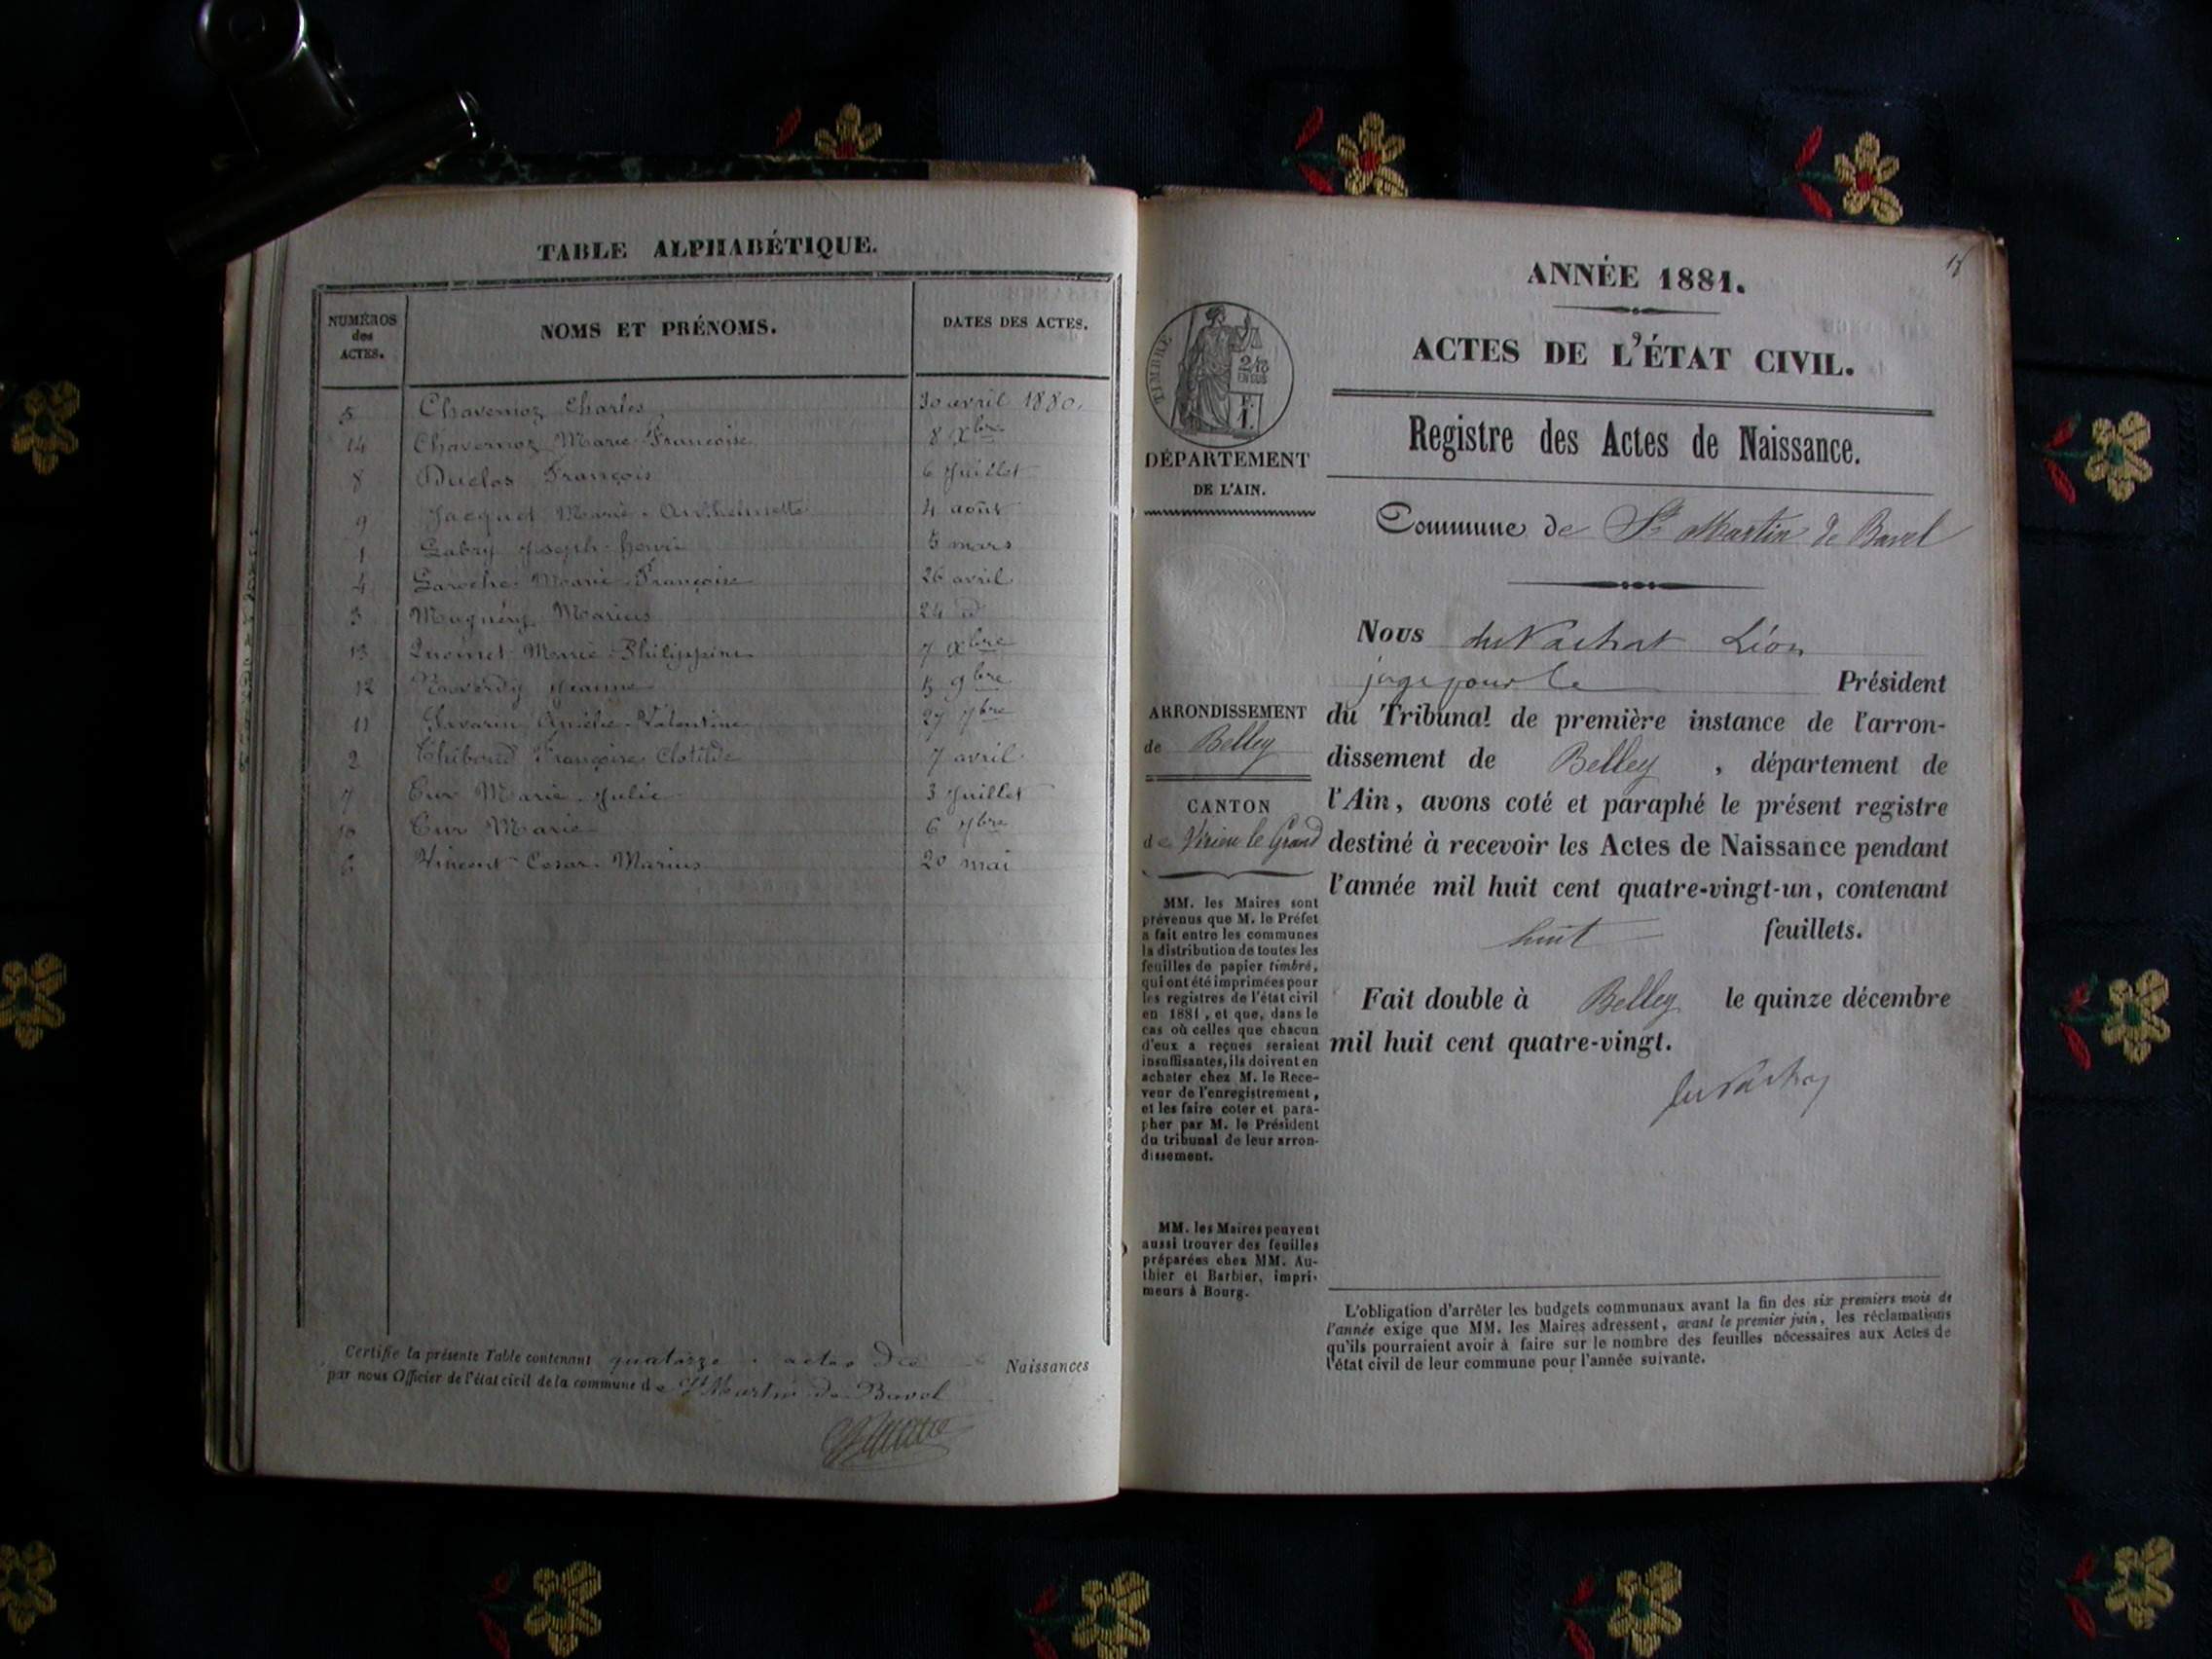 TABLE ALPHABÉTIQUE.
NUMÉROS
des
ACTES.
NOMS ET PRÉNOMS.
DATES DES ACTES.
5 Chavernoz Charles 30 avril 1880.
14 Chavernoz Marie Françoise 8 Xbre
8 Duclos François 6 Juillet
9 Jacquet Marie Anthelmette 4 août
1 Joseph henri 5 mars
4 Laroche Marie Françoise 26 avril
3 Marius 24 d
13 Marie Philippine 7 Xbre
12 Jeanne 15 9bre
11 Valentine 27 7bre
2 Thiboud Françoise Clotilde 7 avril
7 Cur Marie Julie 3 Juillet
10 Cur Marie 6 7bre
6 Vincent Cesar Marius 20 mai
Certifié la présente Table contenant quatorze actes de Naissances
par nous Officier de l'état civil de la commune de St Martin de Bavel
ANNÉE 1881.
ACTES DE L'ÉTAT CIVIL.
Registre des Actes de Naissance.
Commune de St Martin de Bavel
TIMBRE
DÉPARTEMENT
DE L'AIN.
ARRONDISSEMENT
de Belley
CANTON
de Virieu le Grand
MM. les Maires sont
prévenus que M. le Préfet
a fait entre les communes
la distribution de toutes les
feuilles de papier timbré,
qui ont été imprimées pour
les registres de l'état civil
en 1881, et que, dans le
cas où celles que chacun
d'eux a reçues seraient
insuffisantes, ils doivent en
acheter chez M. le Rece-
veur de l'enregistrement,
et les faire coter et para-
pher par M. le Président
du tribunal de leur arron-
dissement.
MM. les Maires peuvent
aussi trouver des feuilles
préparées chez MM. Au-
thier et Barbier, impri-
meurs à Bourg.
Nous du Vachat Léon
juge pour le Président
du Tribunal de première instance de l'arron-
dissement de Belley, département de
l'Ain, avons coté et paraphé le présent registre
destiné à recevoir les Actes de Naissance pendant
l'année mil huit cent quatre-vingt-un, contenant
huit feuillets.
Fait double à Belley le quinze décembre
mil huit cent quatre-vingt.
du Vachat
L'obligation d'arrêter les budgets communaux avant la fin des six premiers mois de
l'année exige que MM. les Maires adressent, avant le premier juin, les réclamations
qu'ils pourraient avoir à faire sur le nombre des feuilles nécessaires aux Actes de
l'état civil de leur commune pour l'année suivante.